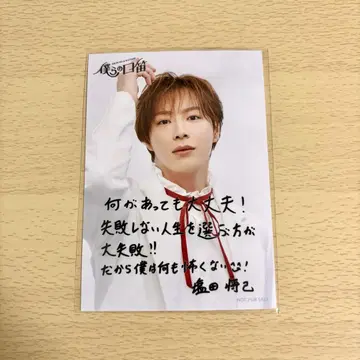 僕らの口笛
何があっても大丈夫！
失敗しない人生を選ぶ方が
大失敗!!
だから僕は何も怖くない！
塩田 将己
NOT FOR SALE